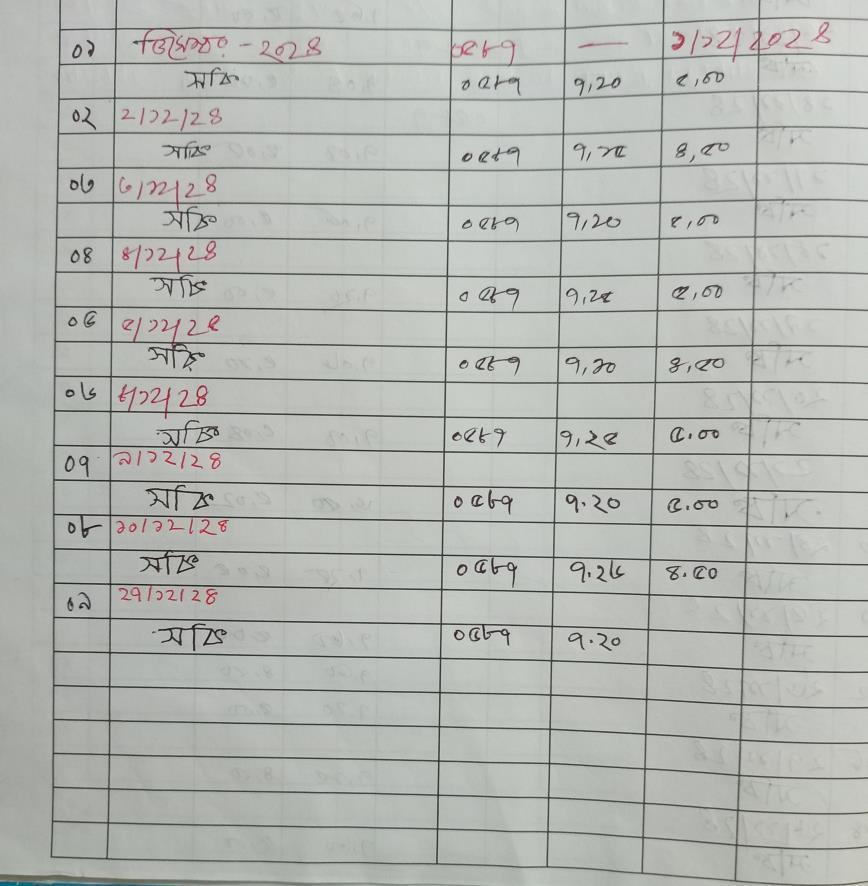 ০১ ডিসেম্বর - ২০২৪ ০৫৮৭ — ১/১২/২০২৪
সচিং ০৫৮৭ ৭,২০ ৫,০০
০২ ২/১২/২৪
সচিং ০৫৮৭ ৭,১৫ ৪,৫০
০৩ ৩/১২/২৪
সচিং ০৫৮৭ ৭,২০ ৫,০০
০৪ ৪/১২/২৪
সচিং ০৫৮৭ ৭,২৫ ৫,০০
০৫ ৫/১২/২৪
সচিং ০৫৮৭ ৭,১০ ৪,৫০
০৬ ৮/১২/২৪
সচিং ০৫৮৭ ৭,২৫ ৫.০০
০৭ ৯/১২/২৪
সচিং ০৫৮৭ ৭.২০ ৫.০০
০৮ ১০/১২/২৪
সচিং ০৫৮৭ ৭.২৬ ৪.৫০
০৯ ২৭/১২/২৪
সচিং ০৫৮৭ ৭.২০